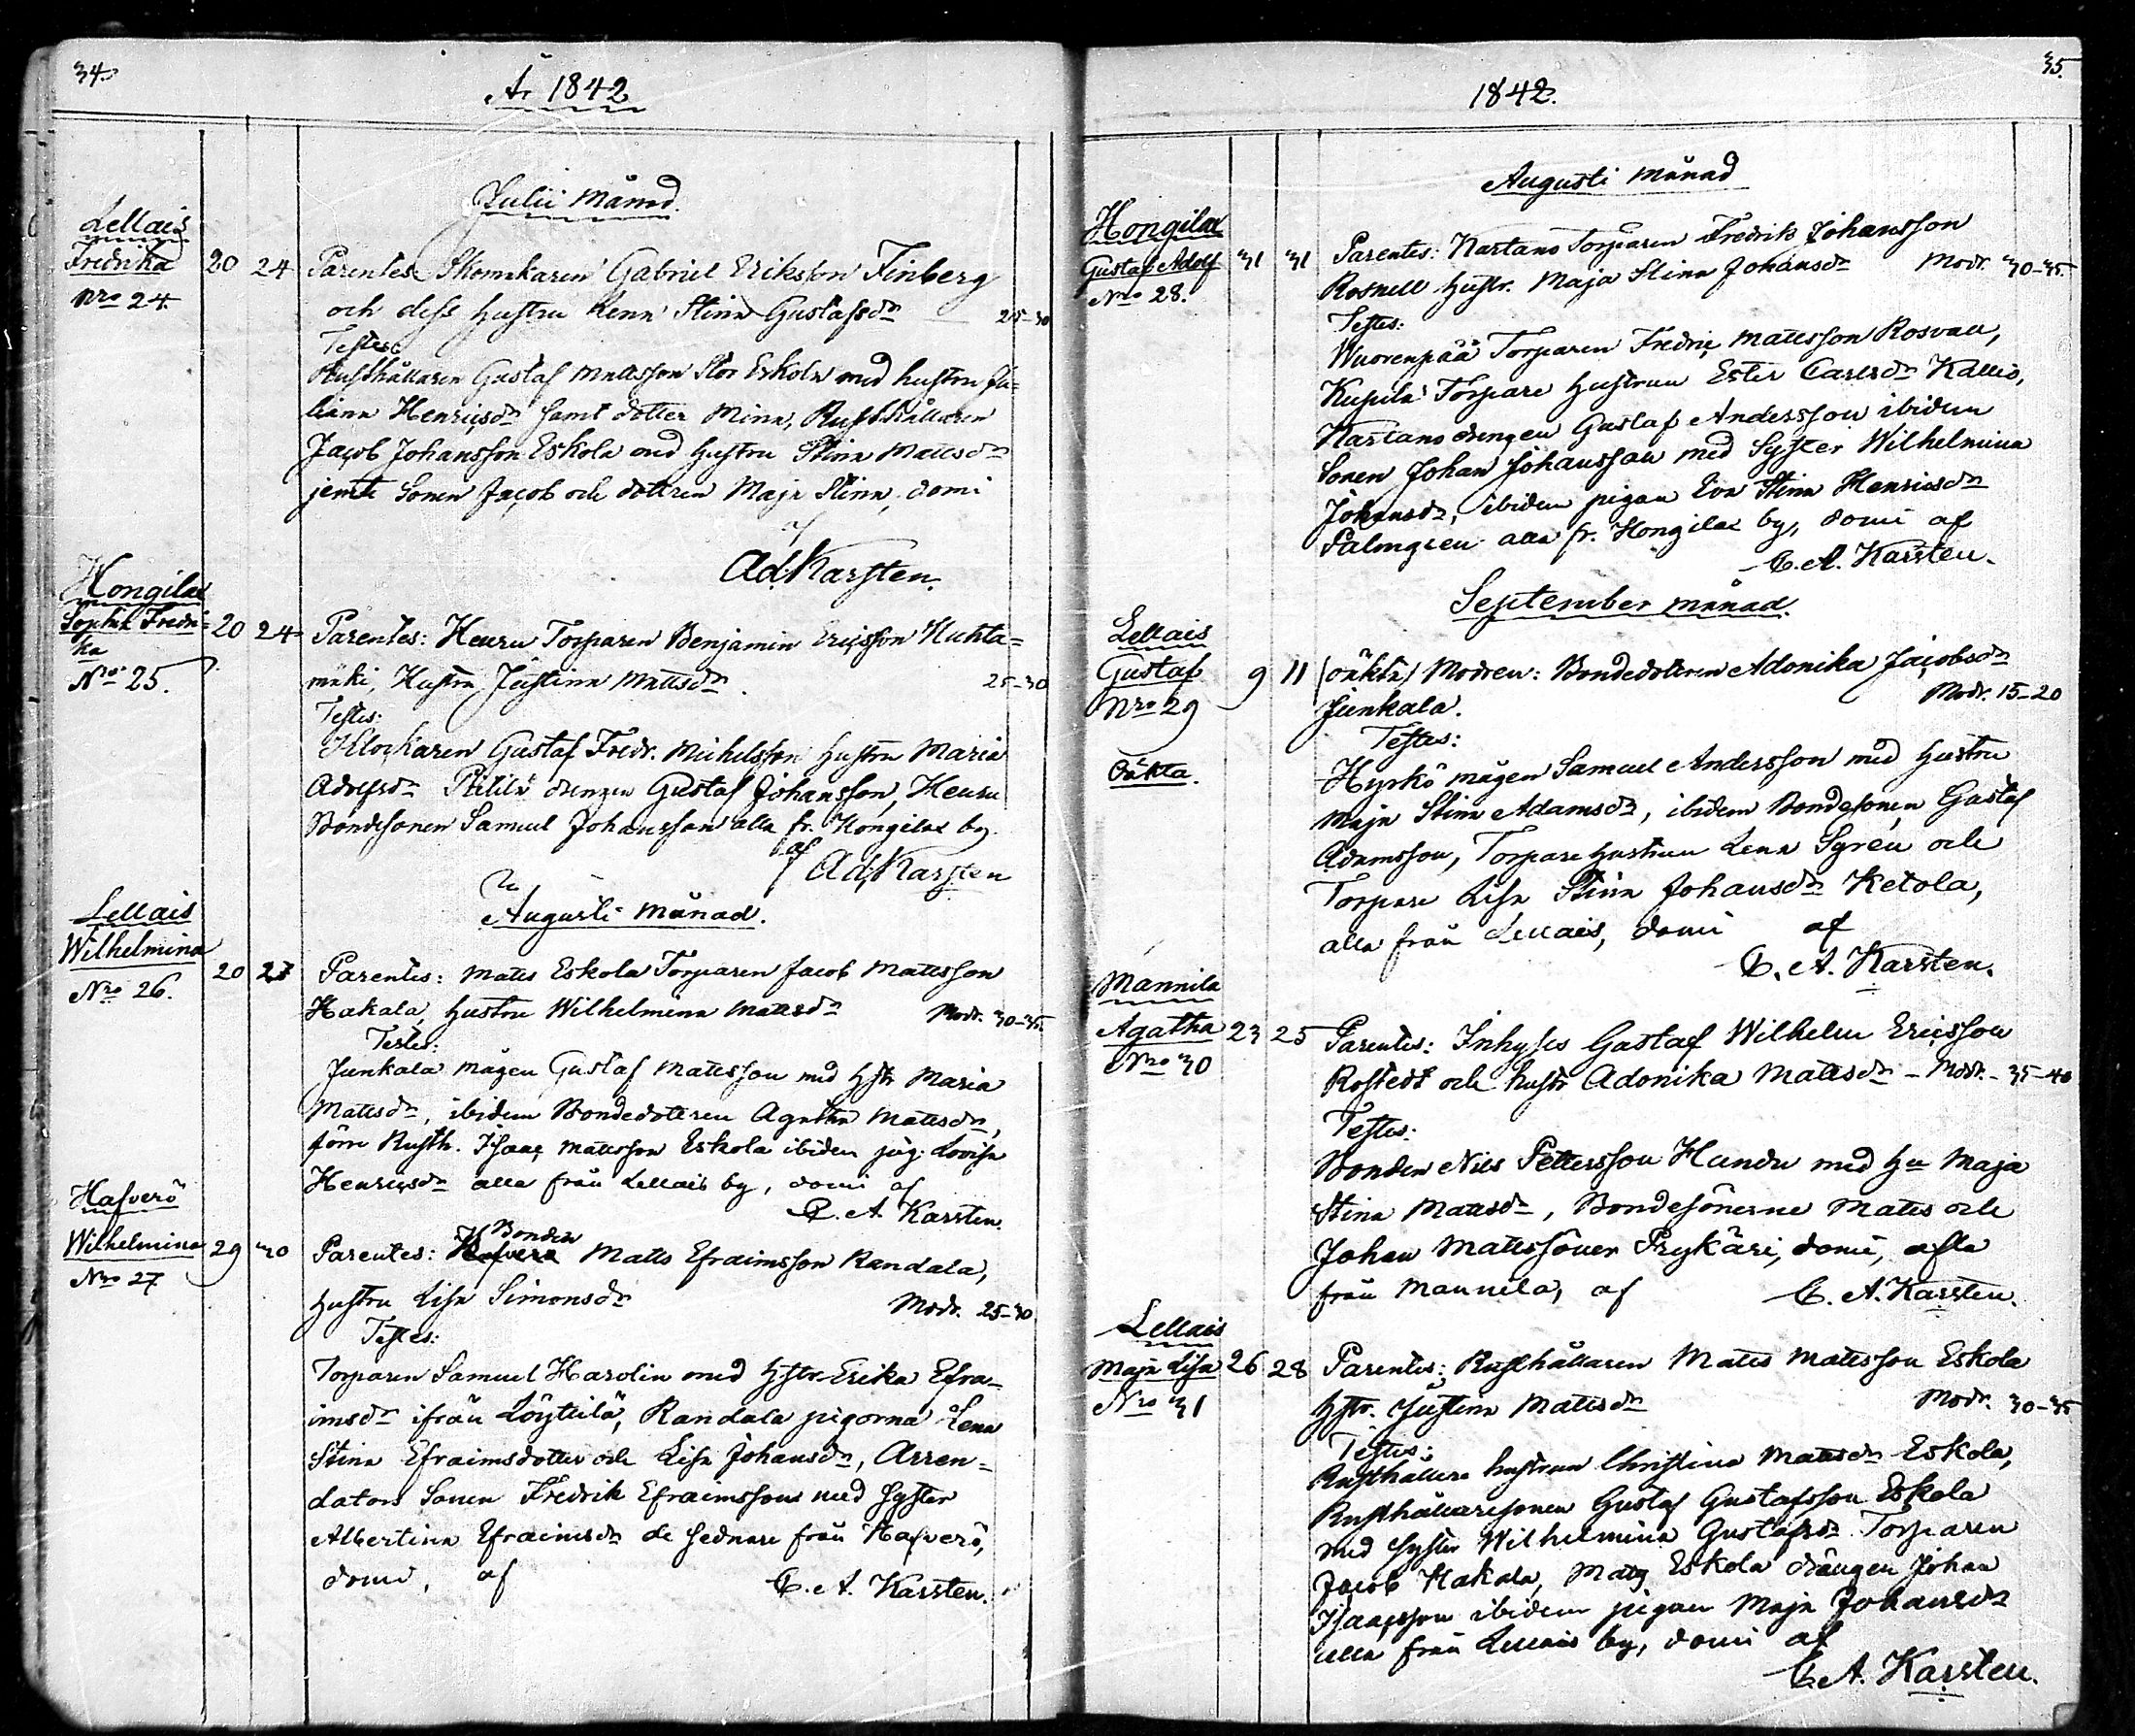 34.
År 1842
Julii Månad.
Lellais
Fredrika
Nro 24
20 24
Parentes Skomakaren Gabriel Eriksson Finberg
och dess hustru Lena Stina Gustafsdr 25-30
Testes
Rusthållaren Gustaf Mattsson Stor Eskola med hustru Ju=
liana Henricsdr samt dotter Mina, Rusthållaren
Jacob Johansson Eskola med hustru Stina Mattsdr
jemte Sonen Jacob och dottren Maja Stina, domi
af
Ad. Karsten.
Hongilax
Sophia Fredri=
ka
Nro 25.
20 24
Parentes: Heuru Torparen Benjamin Ericsson Huhta=
mäki, Hustru Justina Mattsdr 25-30
Testes:
Klockaren Gustaf Fredr. Michelsson hustru Maria
Adolfsdr drengen Gustaf Johansson, Heuru
Bondesonen Samuel Johansson alla fr. Hongilax by.
af Ad. Karsten
Augusti Månad.
Lellais
Wilhelmina
Nro 26.
20 27
Parentes: Matts Eskola Torparen Jacob Mattsson
Hakala, hustru Wilhelmina Mattsdr Modr. 30-35.
Testes:
Junkala mågen Gustaf Mattsson med hstr Maria
Mattsdr, ibidem Bondedotteren Agatha Mattsdr,
förre Rusth. Isaac Mattsson Eskola ibidem pig. Lovisa
Henricsdr alla från Lellais by, domi af
C. A. Karsten.
Hafverö
Wilhelmina
Nro 27
29 30
Bonden
Parentes: Hafverö Matts Efraimsson Randala,
hustru Lisa Simonsdr Modr. 25-30.
Testes:
Torparen Samuel Harolin med hstr Erika Efra=
imsdr ifrån Löytilä, Randala pigorna Lena
Stina Efraimsdotter och Lisa Johansdr, Arren=
dators Sonen Fredrik Efraimsson med Syster
Albertina Efraimsdr de sednare från Hafverö,
domi, af C. A. Karsten.
35.
1842.
Augusti månad
Hongilax
Gustaf Adolf
Nro 28.
31 31
Parentes: Kartano Torparen Fredrik Johansson
Rosnell hustr. Maja Stina Johansdr Modr. 30-35.
Testes:
Wuorenpää Torparen Fredric Mattsson Rosvall,
Kupila Torpare hustrun Ester Carlsdr Kallio,
Kartano drengen Gustaf Andersson ibidem
Sonen Johan Johansson med Syster Wilhelmina
Johansdr, ibidem pigan Eva Stina Henricsdr
Palmgren alla fr. Hongilax by, domi af
C. A. Karsten.
September månad.
Lellais
Gustaf
Nro 29
Oäkta.
9 11
(oäkta) Modren: Bondedotteren Adonika Jacobsdr
Junkala. Modr. 15-20
Testes:
Hyrkö mågen Samuel Andersson med hustru
Maja Stina Adamsdr, ibidem Bondesonen Gustaf
Adamsson, Torpare hustrun Lena Syrén och
Torpare Lisa Stina Johansdr Ketola,
alla från Lellais, domi af
C. A. Karsten.
Mannila
Agatha
Nro 30
23 25
Parentes: Inhyses Gustaf Wilhelm Ericsson
Rostedt och hustr Adonika Mattsdr - Modr. - 35-40
Testes:
Bonden Nils Pettersson Hundu med hu Maja
Stina Mattsdr, Bondesönerne Matts och
Johan Mattssöner Prykäri, domi, alla
från Mannila, af C. A. Karsten.
Lellais
Maja Lisa
Nro 31
26 28
Parentes: Rusthållaren Matts Mattsson Eskola
hstr. Justina Mattsdr Modr. 30-35
Testes:
Rusthållare hustrun Christina Mattsdr Eskola,
Rusthållaresonen Gustaf Gustafsson Eskola
med syster Wilhelmina Gustafsdr Torparen
Jacob Hakala, Matts Eskola drängen Johan
Isaacsson ibidem pigan Maja Johansdr
alla från Lellais by, domi af
C. A. Karsten.